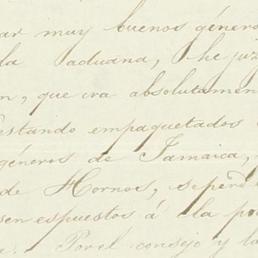 ar muy buenos género
la Aduana, he juz
n, que era absolutamen
estando empaquetados
géneros de Jamaica,
de Hornos, se perd
sen espuestos á la p
Por el consejo y la